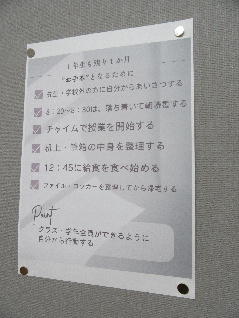 1年生も残り1か月
"お手本"となるために
先生・学校外の方に自分からあいさつする
8:20~8:30は、落ち着いて朝読書する
チャイムで授業を開始する
机上・筆箱の中身を整理する
12:45に給食を食べ始める
ファイル・ロッカーを整理してから帰宅する
Point
クラス・学年全員ができるように
自分から行動する